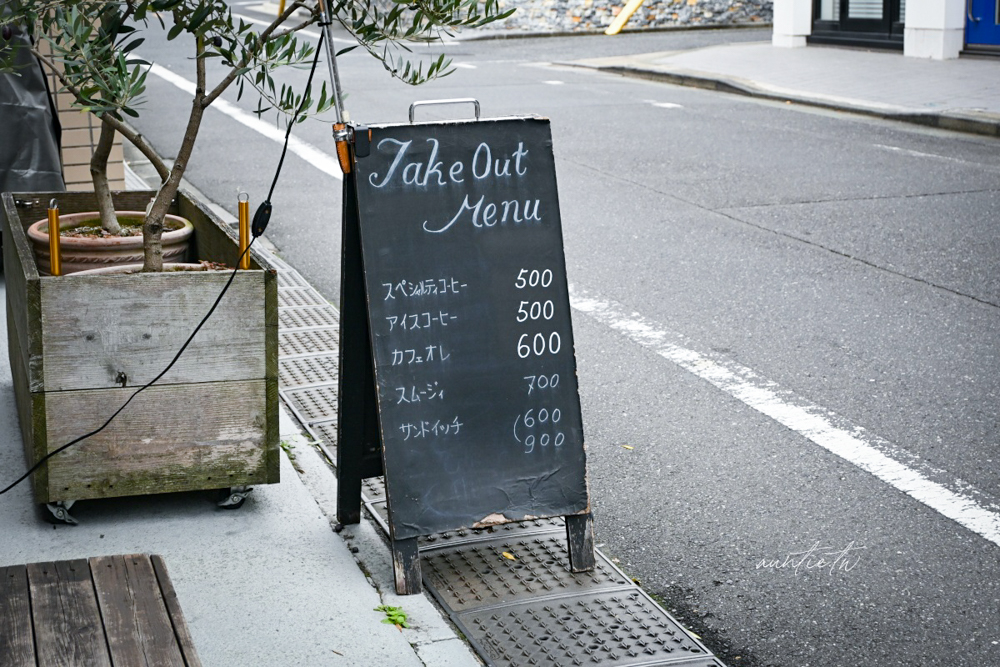 Take Out
Menu
スペシャルティコーヒー 500
アイスコーヒー 500
カフェオレ 600
スムージィ 700
サンドイッチ (600
900
auntieth